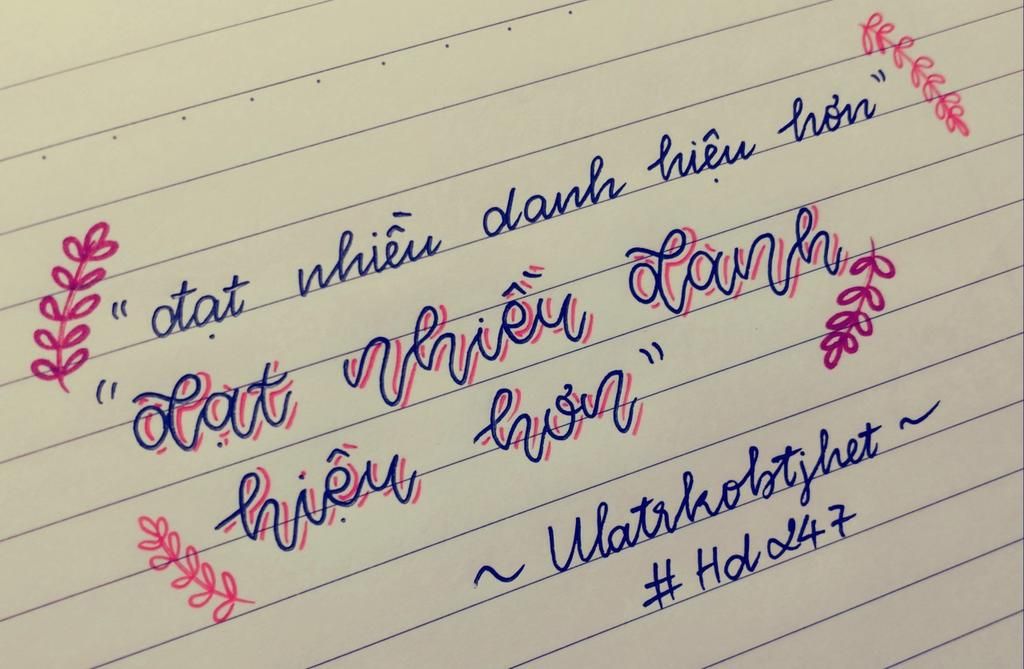 "đạt nhiều danh hiệu hơn"
"đạt nhiều danh
hiệu hơn"
~ Ulatrkobtjhet ~
#Hd247